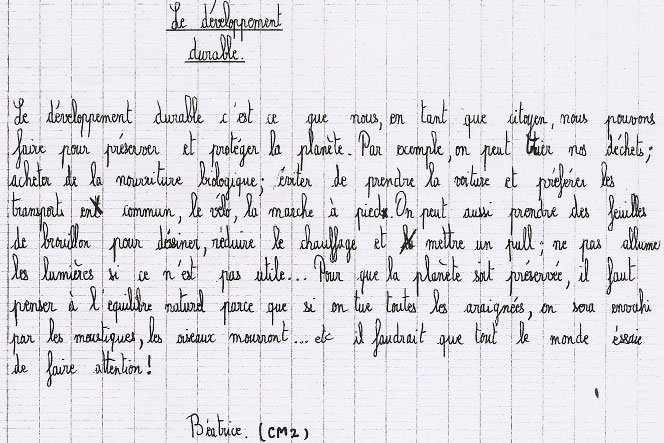 Le développement
durable.
Le développement durable c'est ce que nous, en tant que citoyen, nous pouvons
faire pour préserver et protéger la planète. Par exemple, on peut trier nos déchets;
acheter de la nourriture biologique; éviter de prendre la voiture et préférer les
transports en commun, le vélo, la marche à pied. On peut aussi prendre des feuilles
de brouillon pour déssiner, réduire le chauffage et mettre un pull; ne pas allume
les lumières si ce n'est pas utile... Pour que la planète soit préservée, il faut
penser à l'équilibre naturel parce que si on tue toutes les araignées, on sera envahi
par les moustiques, les oiseaux mourront... etc il faudrait que tout le monde éssaie
de faire attention!
Béatrice. (CM2)